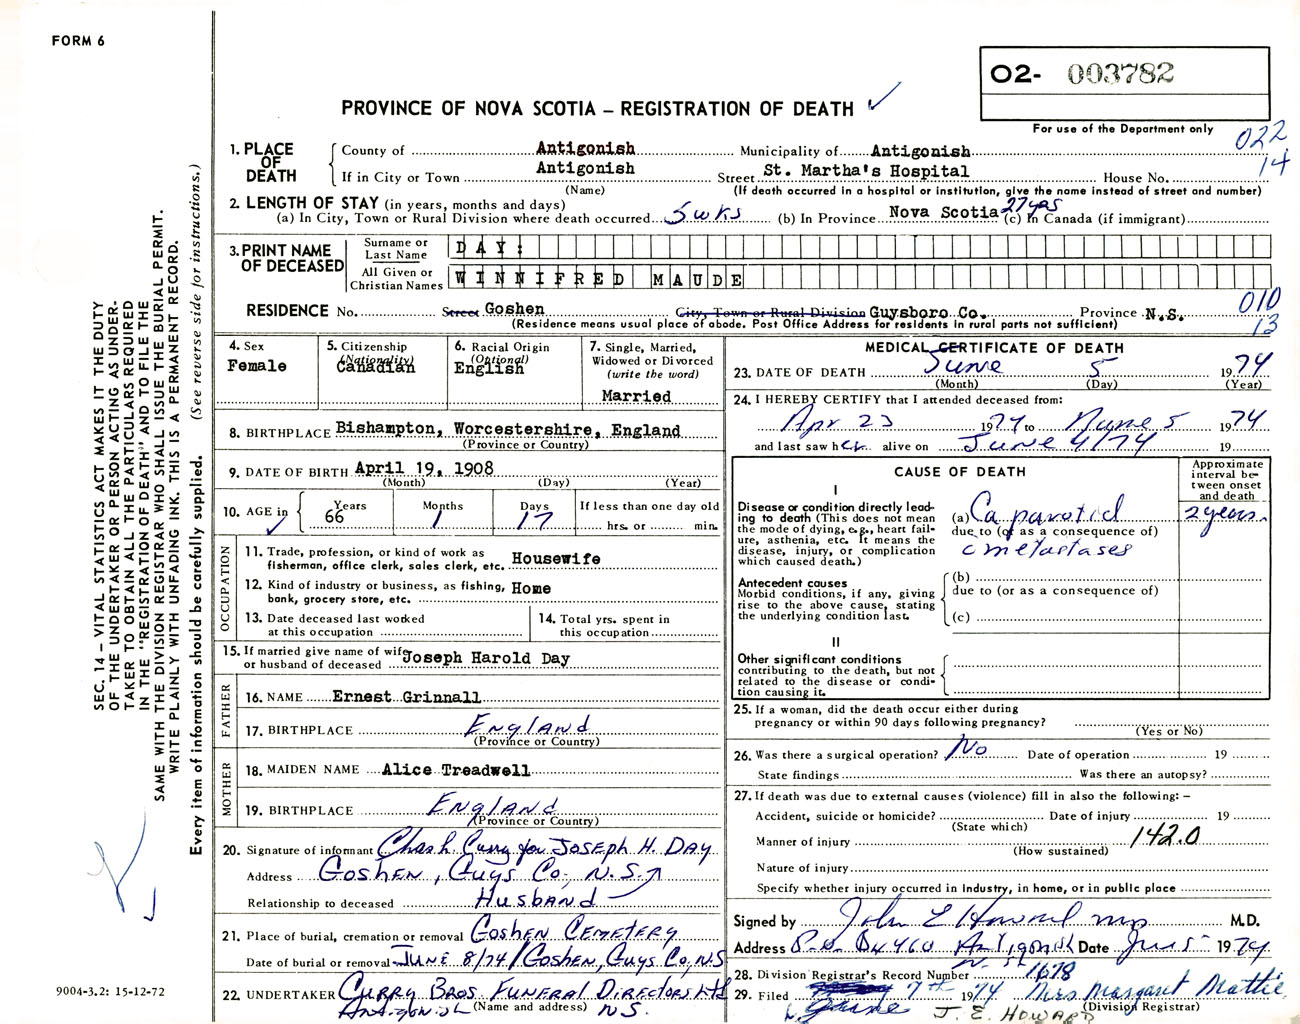 FORM 6
O2- 003782
PROVINCE OF NOVA SCOTIA – REGISTRATION OF DEATH ✓
For use of the Department only
022
14
1. PLACE OF DEATH
County of Antigonish Municipality of Antigonish
If in City or Town Antigonish Street St. Martha's Hospital House No.
(Name) (If death occurred in a hospital or institution, give the name instead of street and number)
2. LENGTH OF STAY (in years, months and days)
(a) In City, Town or Rural Division where death occurred 5 wks (b) In Province Nova Scotia 27 yrs (c) In Canada (if immigrant)
3. PRINT NAME OF DECEASED
Surname or Last Name DAY:
All Given or Christian Names WINNIFRED MAUDE
RESIDENCE No. Street Goshen City, Town or Rural Division Guysboro Co. Province N.S.
(Residence means usual place of abode. Post Office Address for residents in rural parts not sufficient)
010
13
4. Sex
Female
5. Citizenship
(Nationality)
Canadian
6. Racial Origin
(Optional)
English
7. Single, Married,
Widowed or Divorced
(write the word)
Married
8. BIRTHPLACE Bishampton, Worcestershire, England
(Province or Country)
9. DATE OF BIRTH April 19, 1908
(Month) (Day) (Year)
10. AGE in Years 66 Months 1 Days 17 If less than one day old
hrs. or min.
OCCUPATION
11. Trade, profession, or kind of work as
fisherman, office clerk, sales clerk, etc. Housewife
12. Kind of industry or business, as fishing, Home
bank, grocery store, etc.
13. Date deceased last worked
at this occupation
14. Total yrs. spent in
this occupation
15. If married give name of wife
or husband of deceased Joseph Harold Day
FATHER
16. NAME Ernest Grinnall
17. BIRTHPLACE England
(Province or Country)
MOTHER
18. MAIDEN NAME Alice Treadwell
19. BIRTHPLACE England
(Province or Country)
20. Signature of informant Curry for Joseph H. Day
Address Goshen, Guys Co., N.S.
Relationship to deceased Husband
21. Place of burial, cremation or removal Goshen Cemetery
Date of burial or removal June 8/74 / Goshen, Guys Co, N.S
22. UNDERTAKER Curry Bros. Funeral Directors Ltd
Antigonish (Name and address) N.S.
MEDICAL CERTIFICATE OF DEATH
23. DATE OF DEATH June 5 1974
(Month) (Day) (Year)
24. I HEREBY CERTIFY that I attended deceased from:
Apr 23 1974 to June 5 1974
and last saw her alive on June 4/74 19
CAUSE OF DEATH
Approximate
interval be-
tween onset
and death
I
Disease or condition directly lead-
ing to death (This does not mean
the mode of dying, e.g., heart fail-
ure, asthenia, etc. It means the
disease, injury, or complication
which caused death.)
(a) Ca parotid 2 years.
due to (or as a consequence of)
c metastases
Antecedent causes
Morbid conditions, if any, giving
rise to the above cause, stating
the underlying condition last.
(b)
due to (or as a consequence of)
(c)
II
Other significant conditions
contributing to the death, but not
related to the disease or condi-
tion causing it.
25. If a woman, did the death occur either during
pregnancy or within 90 days following pregnancy?
(Yes or No)
26. Was there a surgical operation? No Date of operation 19
State findings Was there an autopsy?
27. If death was due to external causes (violence) fill in also the following: –
Accident, suicide or homicide? Date of injury 19
(State which)
Manner of injury 142.0
(How sustained)
Nature of injury
Specify whether injury occurred in industry, in home, or in public place
Signed by John E Howard MD M.D.
Address P.O. Bx 460 Antigonish Date Jun 5 1974
N.S.
28. Division Registrar's Record Number 1678
29. Filed 7th 1974 Mrs Margaret Mattie
June (Division Registrar)
J. E. HOWARD
SEC. 14 – VITAL STATISTICS ACT MAKES IT THE DUTY
OF THE UNDERTAKER OR PERSON ACTING AS UNDER-
TAKER TO OBTAIN ALL THE PARTICULARS REQUIRED
IN THE "REGISTRATION OF DEATH" AND TO FILE THE
SAME WITH THE DIVISION REGISTRAR WHO SHALL ISSUE THE BURIAL PERMIT.
WRITE PLAINLY WITH UNFADING INK. THIS IS A PERMANENT RECORD.
Every item of information should be carefully supplied. (See reverse side for instructions.)
9004-3.2: 15-12-72